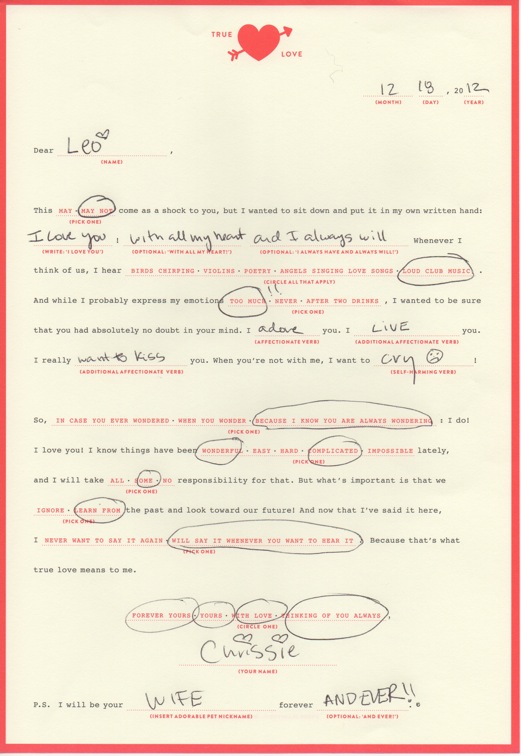 TRUE LOVE
12 18, 2012
(MONTH) (DAY) (YEAR)
Dear Leo,
(NAME)
This MAY · MAY NOT come as a shock to you, but I wanted to sit down and put it in my own written hand:
(PICK ONE)
I love you : with all my heart and I always will Whenever I
(WRITE: 'I LOVE YOU') (OPTIONAL: 'WITH ALL MY HEART!') (OPTIONAL: 'I ALWAYS HAVE AND ALWAYS WILL!')
think of us, I hear BIRDS CHIRPING · VIOLINS · POETRY · ANGELS SINGING LOVE SONGS · LOUD CLUB MUSIC .
(CIRCLE ALL THAT APPLY)
!!
And while I probably express my emotions TOO MUCH · NEVER · AFTER TWO DRINKS , I wanted to be sure
(PICK ONE)
that you had absolutely no doubt in your mind. I adore you. I LiVE you.
(AFFECTIONATE VERB) (ADDITIONAL AFFECTIONATE VERB)
I really want to kiss you. When you're not with me, I want to cry !
(ADDITIONAL AFFECTIONATE VERB) (SELF-HARMING VERB)
So, IN CASE YOU EVER WONDERED · WHEN YOU WONDER · BECAUSE I KNOW YOU ARE ALWAYS WONDERING : I do!
(PICK ONE)
I love you! I know things have been WONDERFUL · EASY · HARD · COMPLICATED · IMPOSSIBLE lately,
(PICK ONE)
and I will take ALL · SOME · NO responsibility for that. But what's important is that we
(PICK ONE)
IGNORE · LEARN FROM the past and look toward our future! And now that I've said it here,
(PICK ONE)
I NEVER WANT TO SAY IT AGAIN · WILL SAY IT WHENEVER YOU WANT TO HEAR IT . Because that's what
(PICK ONE)
true love means to me.
FOREVER YOURS · YOURS · WITH LOVE · THINKING OF YOU ALWAYS,
(CIRCLE ONE)
Chrissie
(YOUR NAME)
P.S. I will be your WIFE forever AND EVER!! . ©
(INSERT ADORABLE PET NICKNAME) (OPTIONAL: 'AND EVER!')